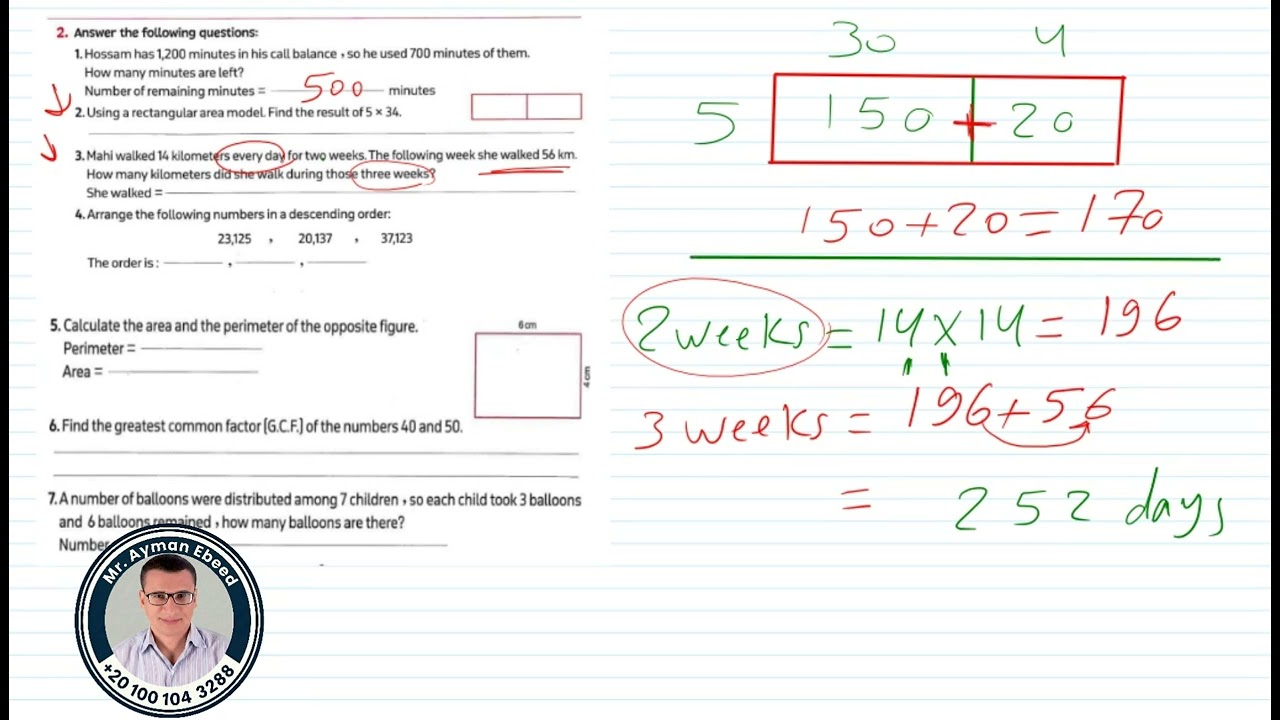 2. Answer the following questions:
1. Hossam has 1,200 minutes in his call balance , so he used 700 minutes of them.
How many minutes are left?
Number of remaining minutes = 500 minutes
2. Using a rectangular area model. Find the result of 5 × 34.
3. Mahi walked 14 kilometers every day for two weeks. The following week she walked 56 km.
How many kilometers did she walk during those three weeks?
She walked =
4. Arrange the following numbers in a descending order:
23,125 , 20,137 , 37,123
The order is : , ,
5. Calculate the area and the perimeter of the opposite figure.
6 cm
Perimeter =
Area =
4 cm
6. Find the greatest common factor (G.C.F.) of the numbers 40 and 50.
7. A number of balloons were distributed among 7 children , so each child took 3 balloons
and 6 balloons remained , how many balloons are there?
Number
30 4
5 150 + 20
150 + 20 = 170
2 weeks = 14 x 14 = 196
3 weeks = 196 + 56
= 252 days
Mr. Ayman Ebeed
+20 100 104 3288